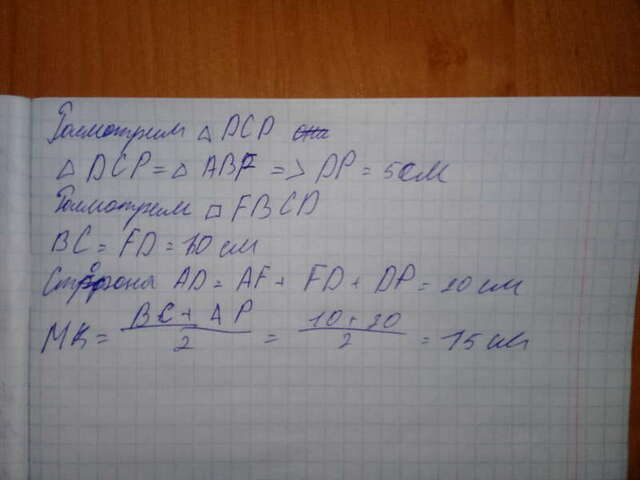 Рассмотрим △ DCP
△ DCP = △ ABF => DP = 5 см
Рассмотрим □ FBCD
BC = FD = 10 см
Сторона AD = AF + FD + DP = 20 см
MK = (BC + AP)/2 = (10 + 20)/2 = 15 см